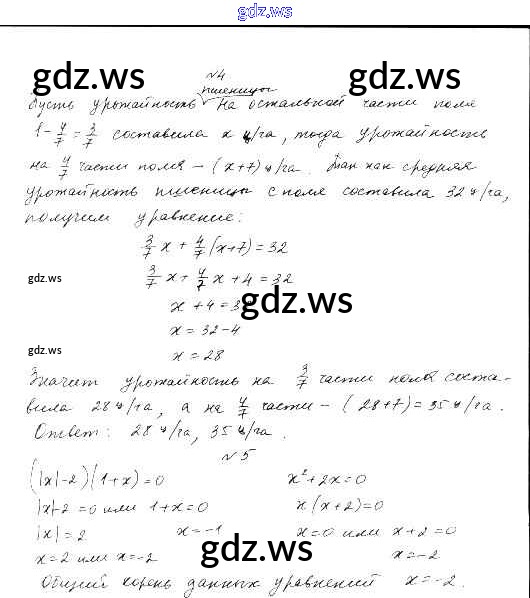 gdz.ws
№4
gdz.ws gdz.ws
пшеницы
Пусть урожайность на остальной части поля
1 - 4/7 = 3/7 составила x ц/га, тогда урожайность
на 4/7 части поля - (x+7) ц/га. Так как средняя
урожайность пшеницы с поля составила 32 ц/га,
получим уравнение:
3/7 x + 4/7 (x+7) = 32
gdz.ws
3/7 x + 4/7 x + 4 = 32
x + 4 = 32
gdz.ws
x = 32 - 4
gdz.ws
x = 28
Значит урожайность на 3/7 части поля соста-
вила 28 ц/га, а на 4/7 части - (28+7) = 35 ц/га.
Ответ: 28 ц/га, 35 ц/га.
№5
(|x|-2)(1+x)=0 x²+2x=0
|x|-2=0 или 1+x=0 x(x+2)=0
|x|=2 x=-1 x=0 или x+2=0
x=2 или x=-2 x=-2
gdz.ws
Общий корень данных уравнений x=-2.